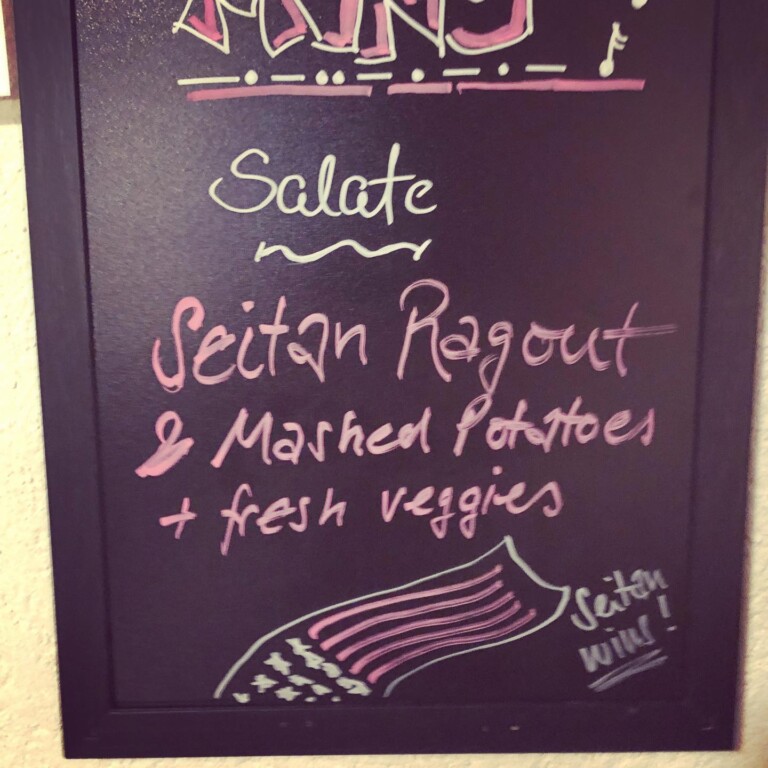 Salate
Seitan Ragout
& Mashed Potattoes
+ fresh veggies
Seitan
wins!